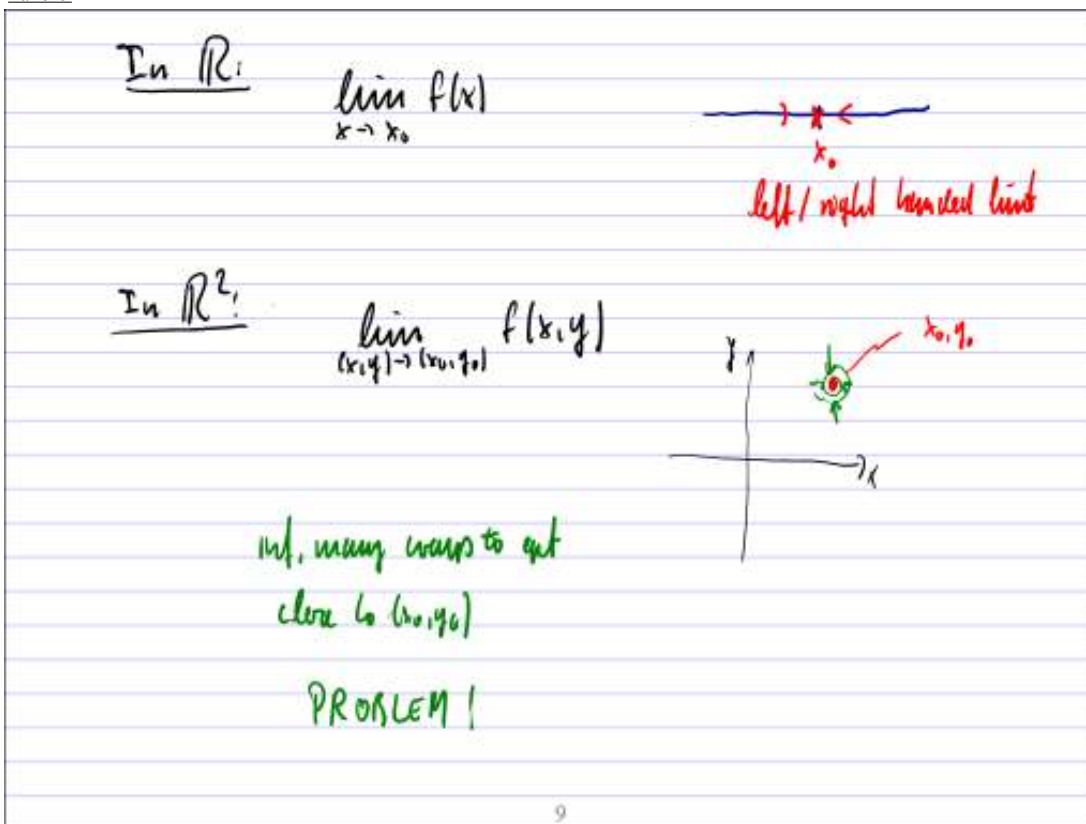 In ℝ:
lim f(x)
x → x₀
x₀
left / right handed limit
In ℝ²:
lim f(x,y)
(x,y) → (x₀,y₀)
x₀, y₀
y
x
inf. many ways to get
close to (x₀,y₀)
PROBLEM !
9